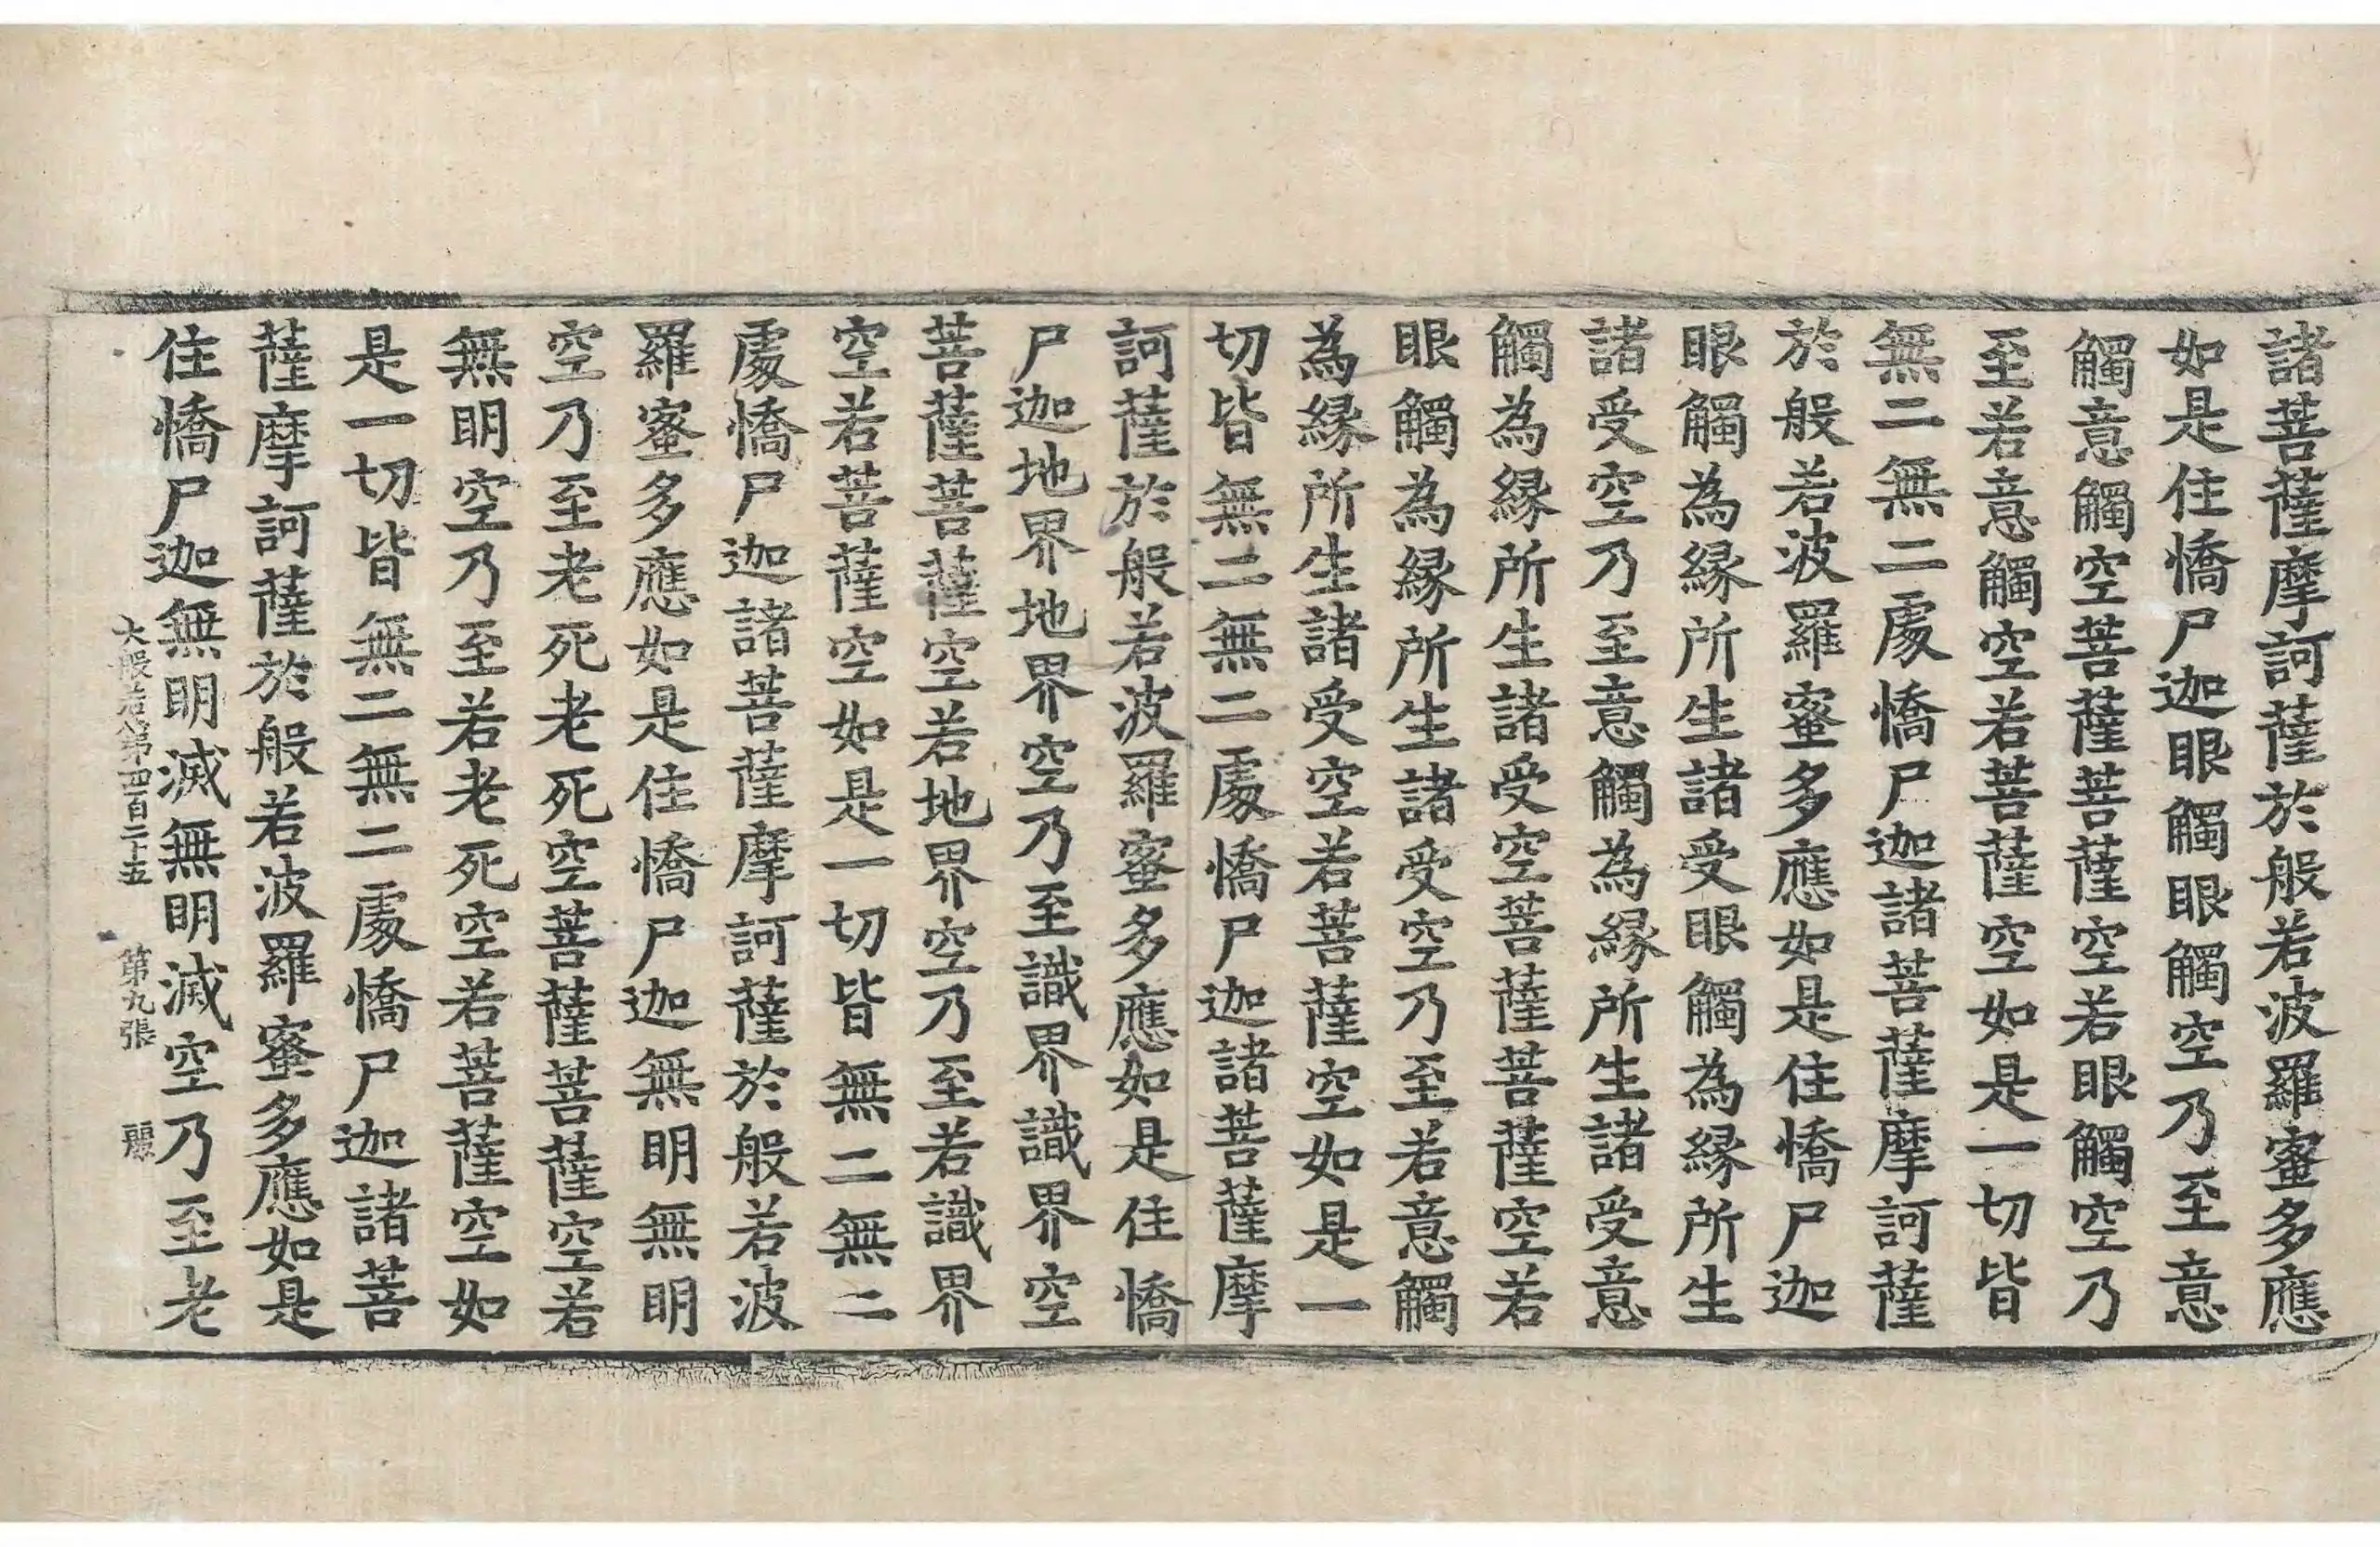 諸菩薩摩訶薩於般若波羅蜜多應
如是住憍尸迦眼觸眼觸空乃至意
觸意觸空菩薩菩薩空若眼觸空乃
至若意觸空若菩薩空如是一切皆
無二無二處憍尸迦諸菩薩摩訶薩
於般若波羅蜜多應如是住憍尸迦
眼觸為緣所生諸受眼觸為緣所生
諸受空乃至意觸為緣所生諸受意
觸為緣所生諸受空菩薩菩薩空若
眼觸為緣所生諸受空乃至若意觸
為緣所生諸受空若菩薩空如是一
切皆無二無二處憍尸迦諸菩薩摩
訶薩於般若波羅蜜多應如是住憍
尸迦地界地界空乃至識界識界空
菩薩菩薩空若地界空乃至若識界
空若菩薩空如是一切皆無二無二
處憍尸迦諸菩薩摩訶薩於般若波
羅蜜多應如是住憍尸迦無明無明
空乃至老死老死空菩薩菩薩空若
無明空乃至若老死空若菩薩空如
是一切皆無二無二處憍尸迦諸菩
薩摩訶薩於般若波羅蜜多應如是
住憍尸迦無明滅無明滅空乃至老
大般若第四百二十五 第九張